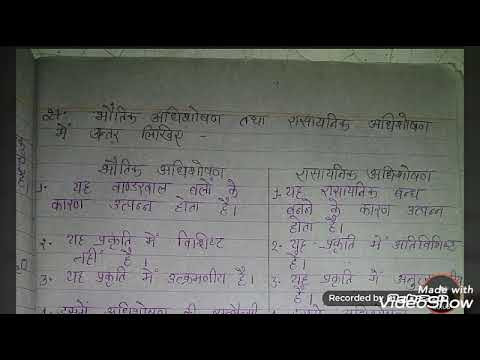 प्र. भौतिक अधिशोषण तथा रासायनिक अधिशोषण
में अन्तर लिखिए -
भौतिक अधिशोषण
1. यह वाण्डरवाल बलों के
कारण उत्पन्न होता है।
2. यह प्रकृति में विशिष्ट
नहीं है।
3. यह प्रकृति में उत्क्रमणीय है।
रासायनिक अधिशोषण
1. यह रासायनिक बन्ध
बनने के कारण उत्पन्न
होता है।
2. यह प्रकृति में अतिविशिष्ट
है।
3. यह प्रकृति में
है।
Recorded by
Made with
VideoShow